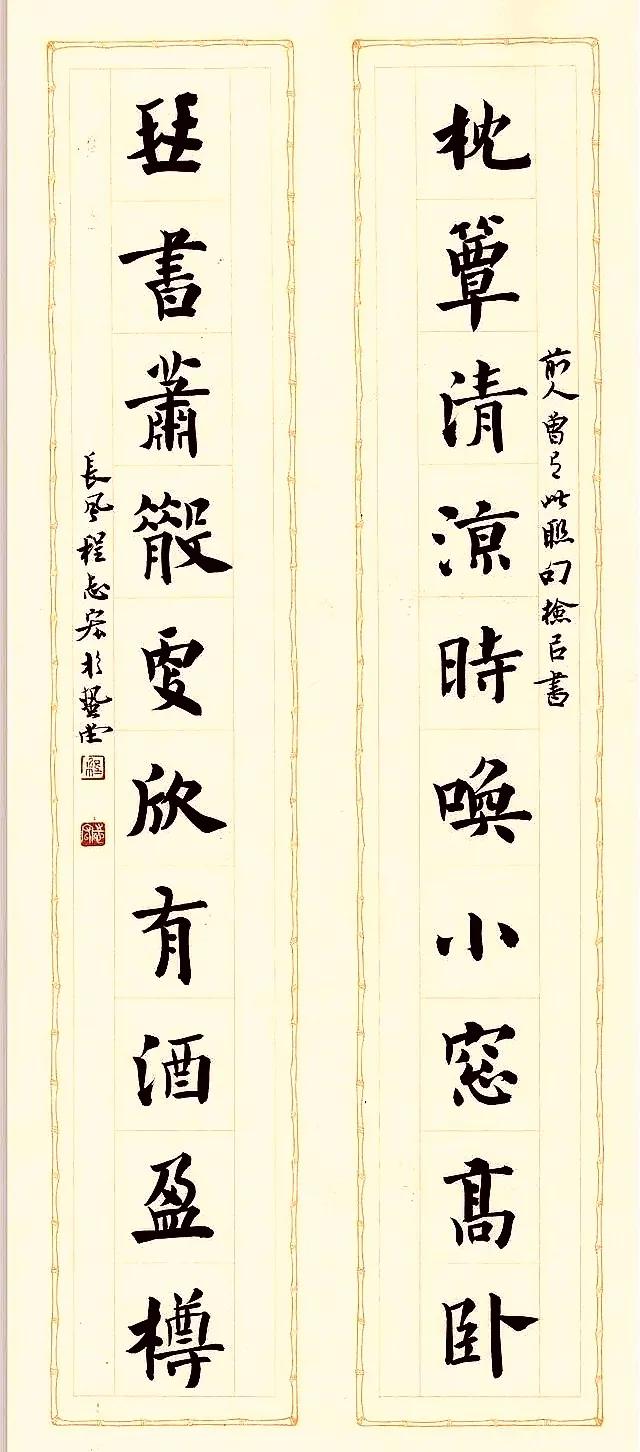 前人曾有此聯句撿㠯書
枕簟清涼時喚小窓高卧
琴書蕭散處欣有酒盈樽
長風程志宏於藝堂